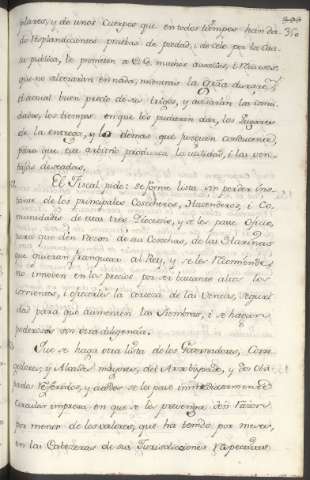 310
ulares, y de unos Cuerpos que en todos tiempos han da-
do resplandecientes pruebas de piedad, i de celo por la Cau-
sa publica, le prometen a V.E. muchos auxilios, i Recursos,
que no alterarán en nada, mientras la guerra durare, y
el actual buen precio de sus trigos, y avisarán las canti-
dades, los tiempos en que los pudieran dar, los lugares
de la entrega, y lo demas que juzguen conducente,
para que este arbitrio produzca la utilidad, i las ven-
tajas deseadas.
El Fiscal pide: se forme lista sin perder ins-
tante de los principales Cosecheros, Hacenderos, i Co-
munidades de esas tres Diocesis, y se les pase Oficio,
para que den razon de sus Cosechas, de las Harinas
que quieran franquear al Rey, y se les recomiende
no innoven en los precios por ser bastante altos los
corrientes, i ofrecerles la certeza de las ventas, seguri-
dad para que aumenten las siembras, i se hagan
poderosos con esta diligencia.
Que se haga otra lista de los Governadores, Corre-
gidores, y Alcaldes mayores, del Arzobispado, y dos Obis-
pados referidos, y a ellos se les pase inmediatamente
circular impresa en que se les prevenga den razon
por menor de los valores, que ha tenido por meses,
en las Cabezeras de sus Jurisdicciones respectivas